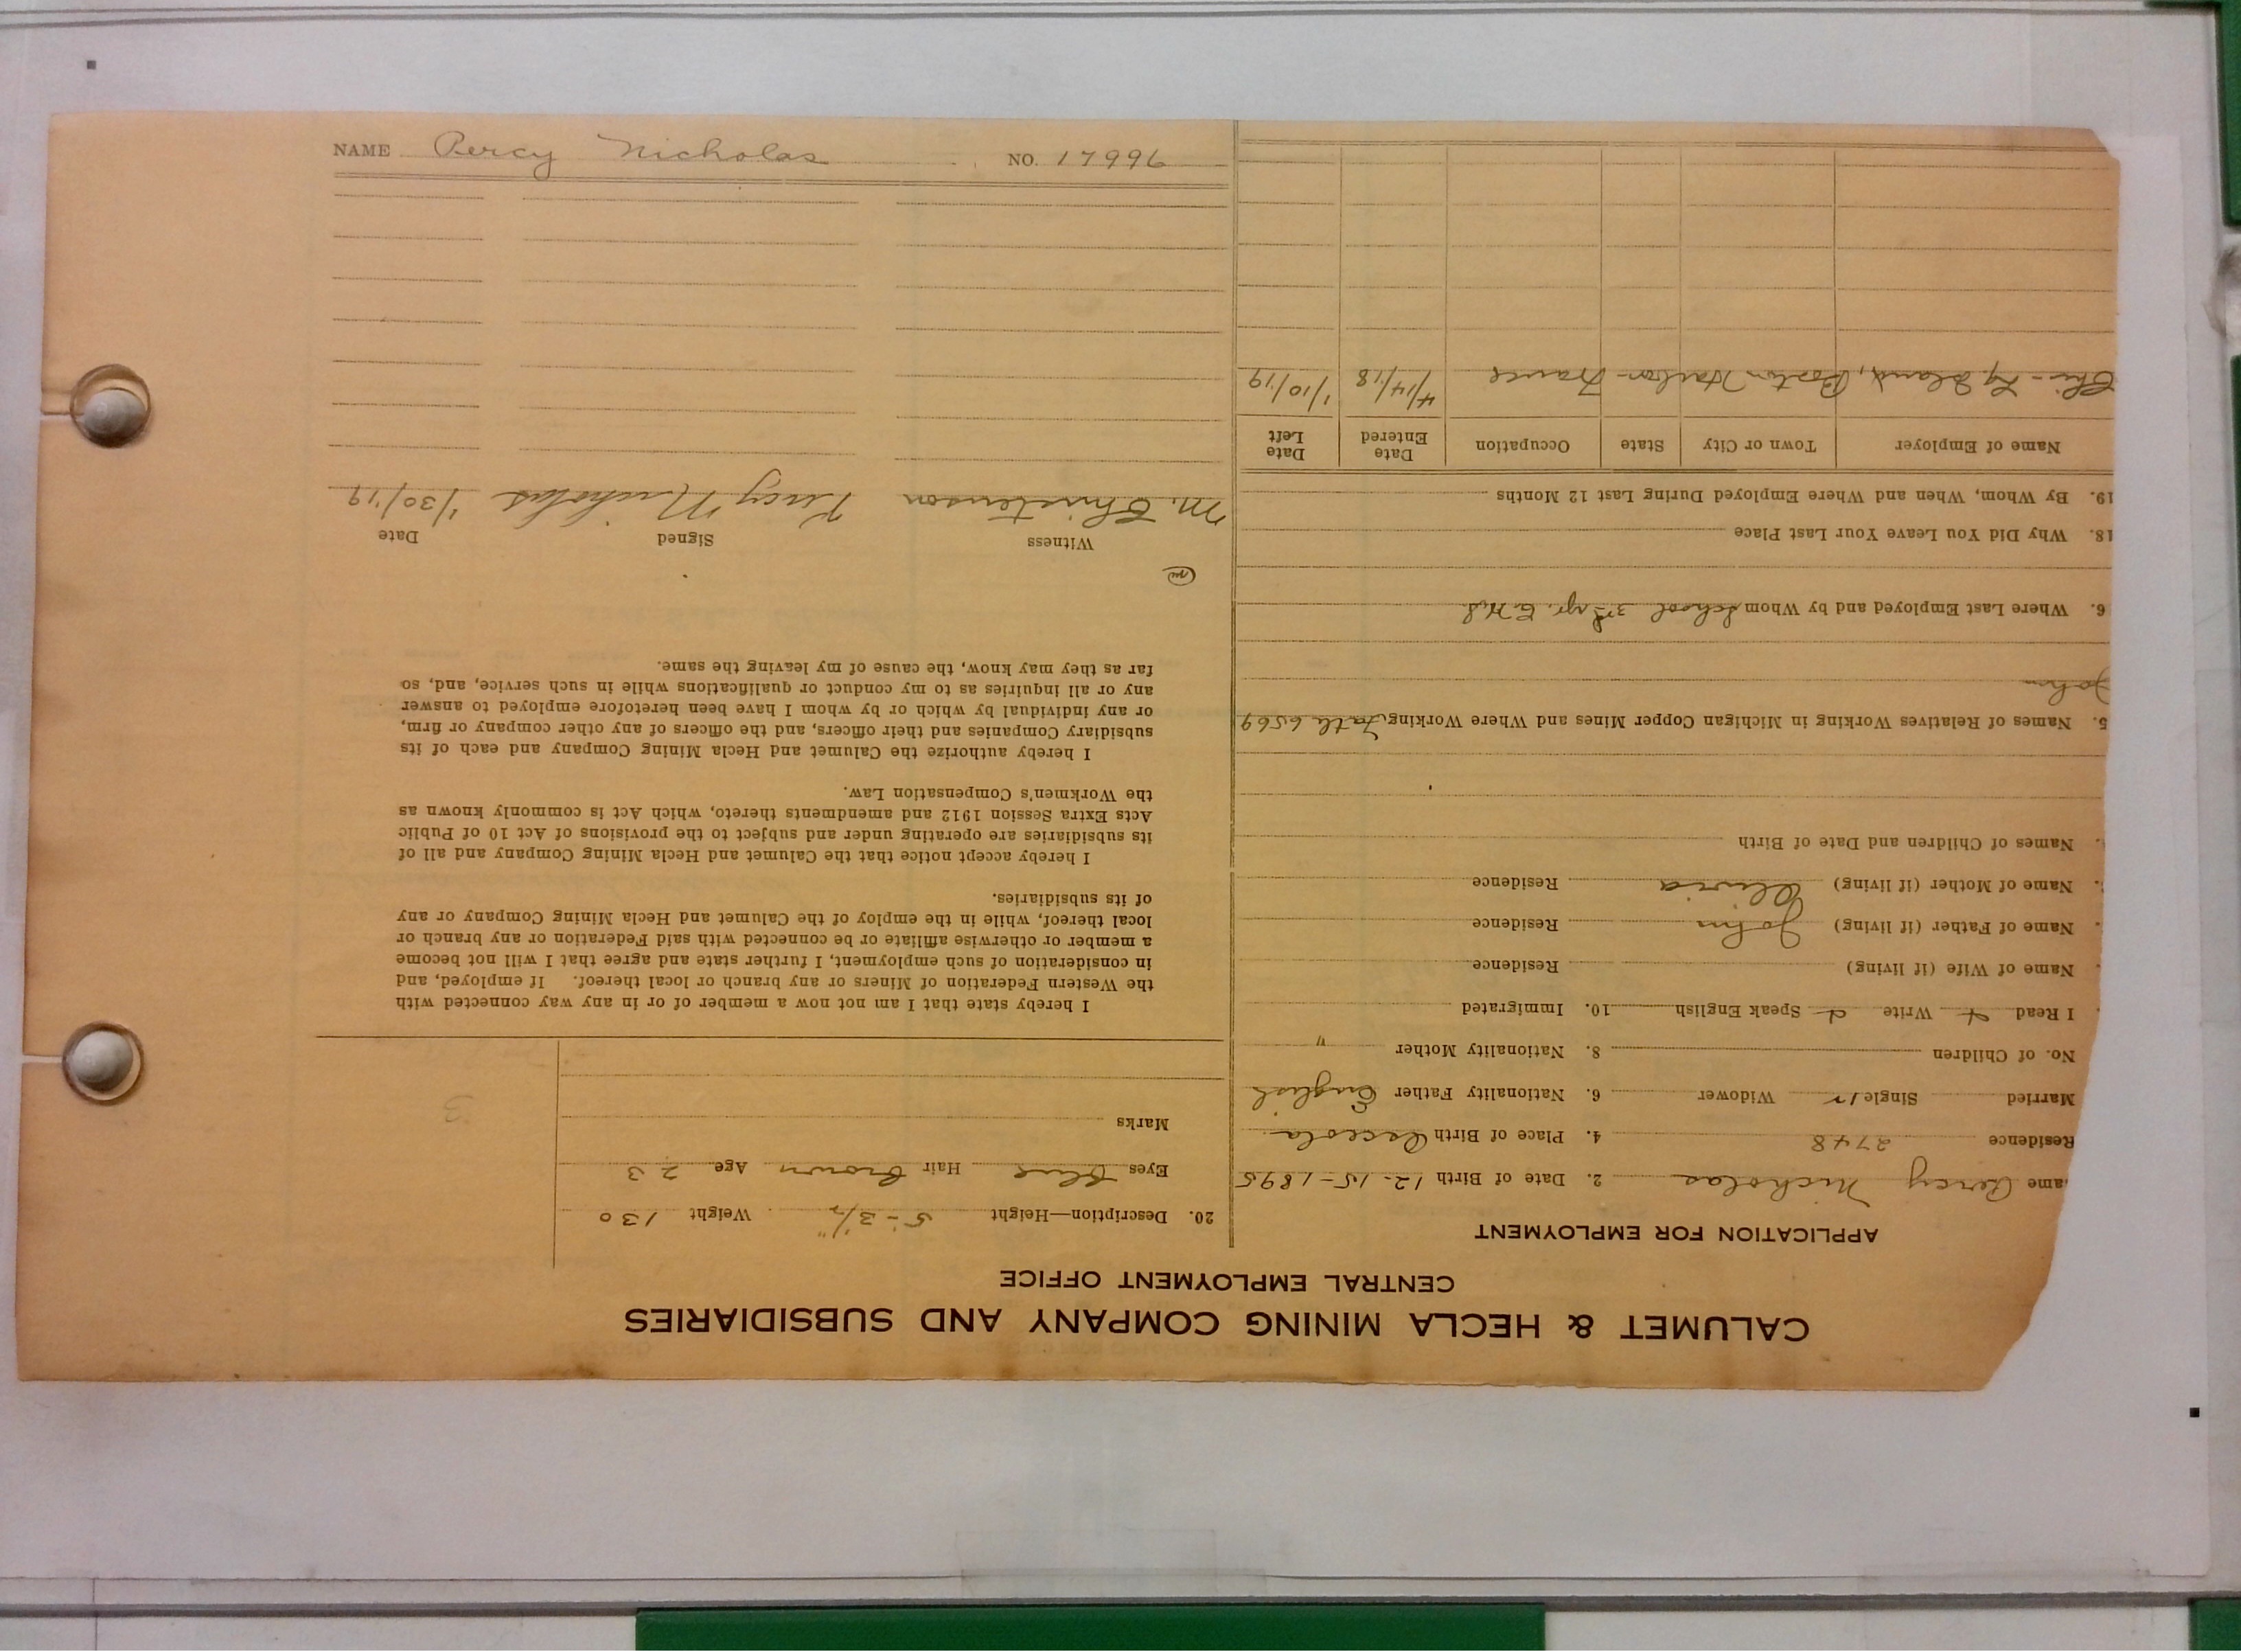 CALUMET & HECLA MINING COMPANY AND SUBSIDIARIES
CENTRAL EMPLOYMENT OFFICE
APPLICATION FOR EMPLOYMENT
ame Percy Nicholas 2. Date of Birth 12-15-1895
Residence 2748 4. Place of Birth Osceola
Married Single Widower 6. Nationality Father English
No. of Children 8. Nationality Mother "
I Read Write Speak English 10. Immigrated
Name of Wife (if living) Residence
Name of Father (if living) John Residence
Name of Mother (if living) Olivia Residence
Names of Children and Date of Birth
5. Names of Relatives Working in Michigan Copper Mines and Where Working 6569
John
6. Where Last Employed and by Whom School 3rd yr. C.H.S.
18. Why Did You Leave Your Last Place
19. By Whom, When and Where Employed During Last 12 Months
Name of Employer Town or City State Occupation Date Entered Date Left
Island, Boston Harbor - France 4/14/18 1/10/19
20. Description—Height 5-3 1/2" Weight 130
Eyes Blue Hair Brown Age 23
Marks
3
I hereby state that I am not now a member of or in any way connected with
the Western Federation of Miners or any branch or local thereof. If employed, and
in consideration of such employment, I further state and agree that I will not become
a member or otherwise affiliate or be connected with said Federation or any branch or
local thereof, while in the employ of the Calumet and Hecla Mining Company or any
of its subsidiaries.
I hereby accept notice that the Calumet and Hecla Mining Company and all of
its subsidiaries are operating under and subject to the provisions of Act 10 of Public
Acts Extra Session 1912 and amendments thereto, which Act is commonly known as
the Workmen's Compensation Law.
I hereby authorize the Calumet and Hecla Mining Company and each of its
subsidiary Companies and their officers, and the officers of any other company or firm,
or any individual by which or by whom I have been heretofore employed to answer
any or all inquiries as to my conduct or qualifications while in such service, and, so
far as they may know, the cause of my leaving the same.
Witness Signed Date
M. Christenson Percy Nicholas 1/30/19
NAME Percy Nicholas NO. 17996